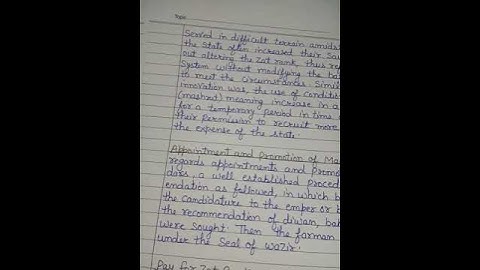 Topic
Served in difficult terrain amidst
the State often increased their Saw
out altering the Zat rank, thus
System without modifying the
to meet the circumstances. Simil
innovation was, the use of condit
(mashrut) meaning increase in a
for a temporary period in time
their permission to recruit more
the expense of the state.
Appointment and Promotion of Ma
regards appointments and promo
dars, a well established proced
endation as followed, in which
the candidature to the emper or b
the recommendation of diwan, bak
were sought. Then the farman
under the Seal of Wazir.
Pay for Zat